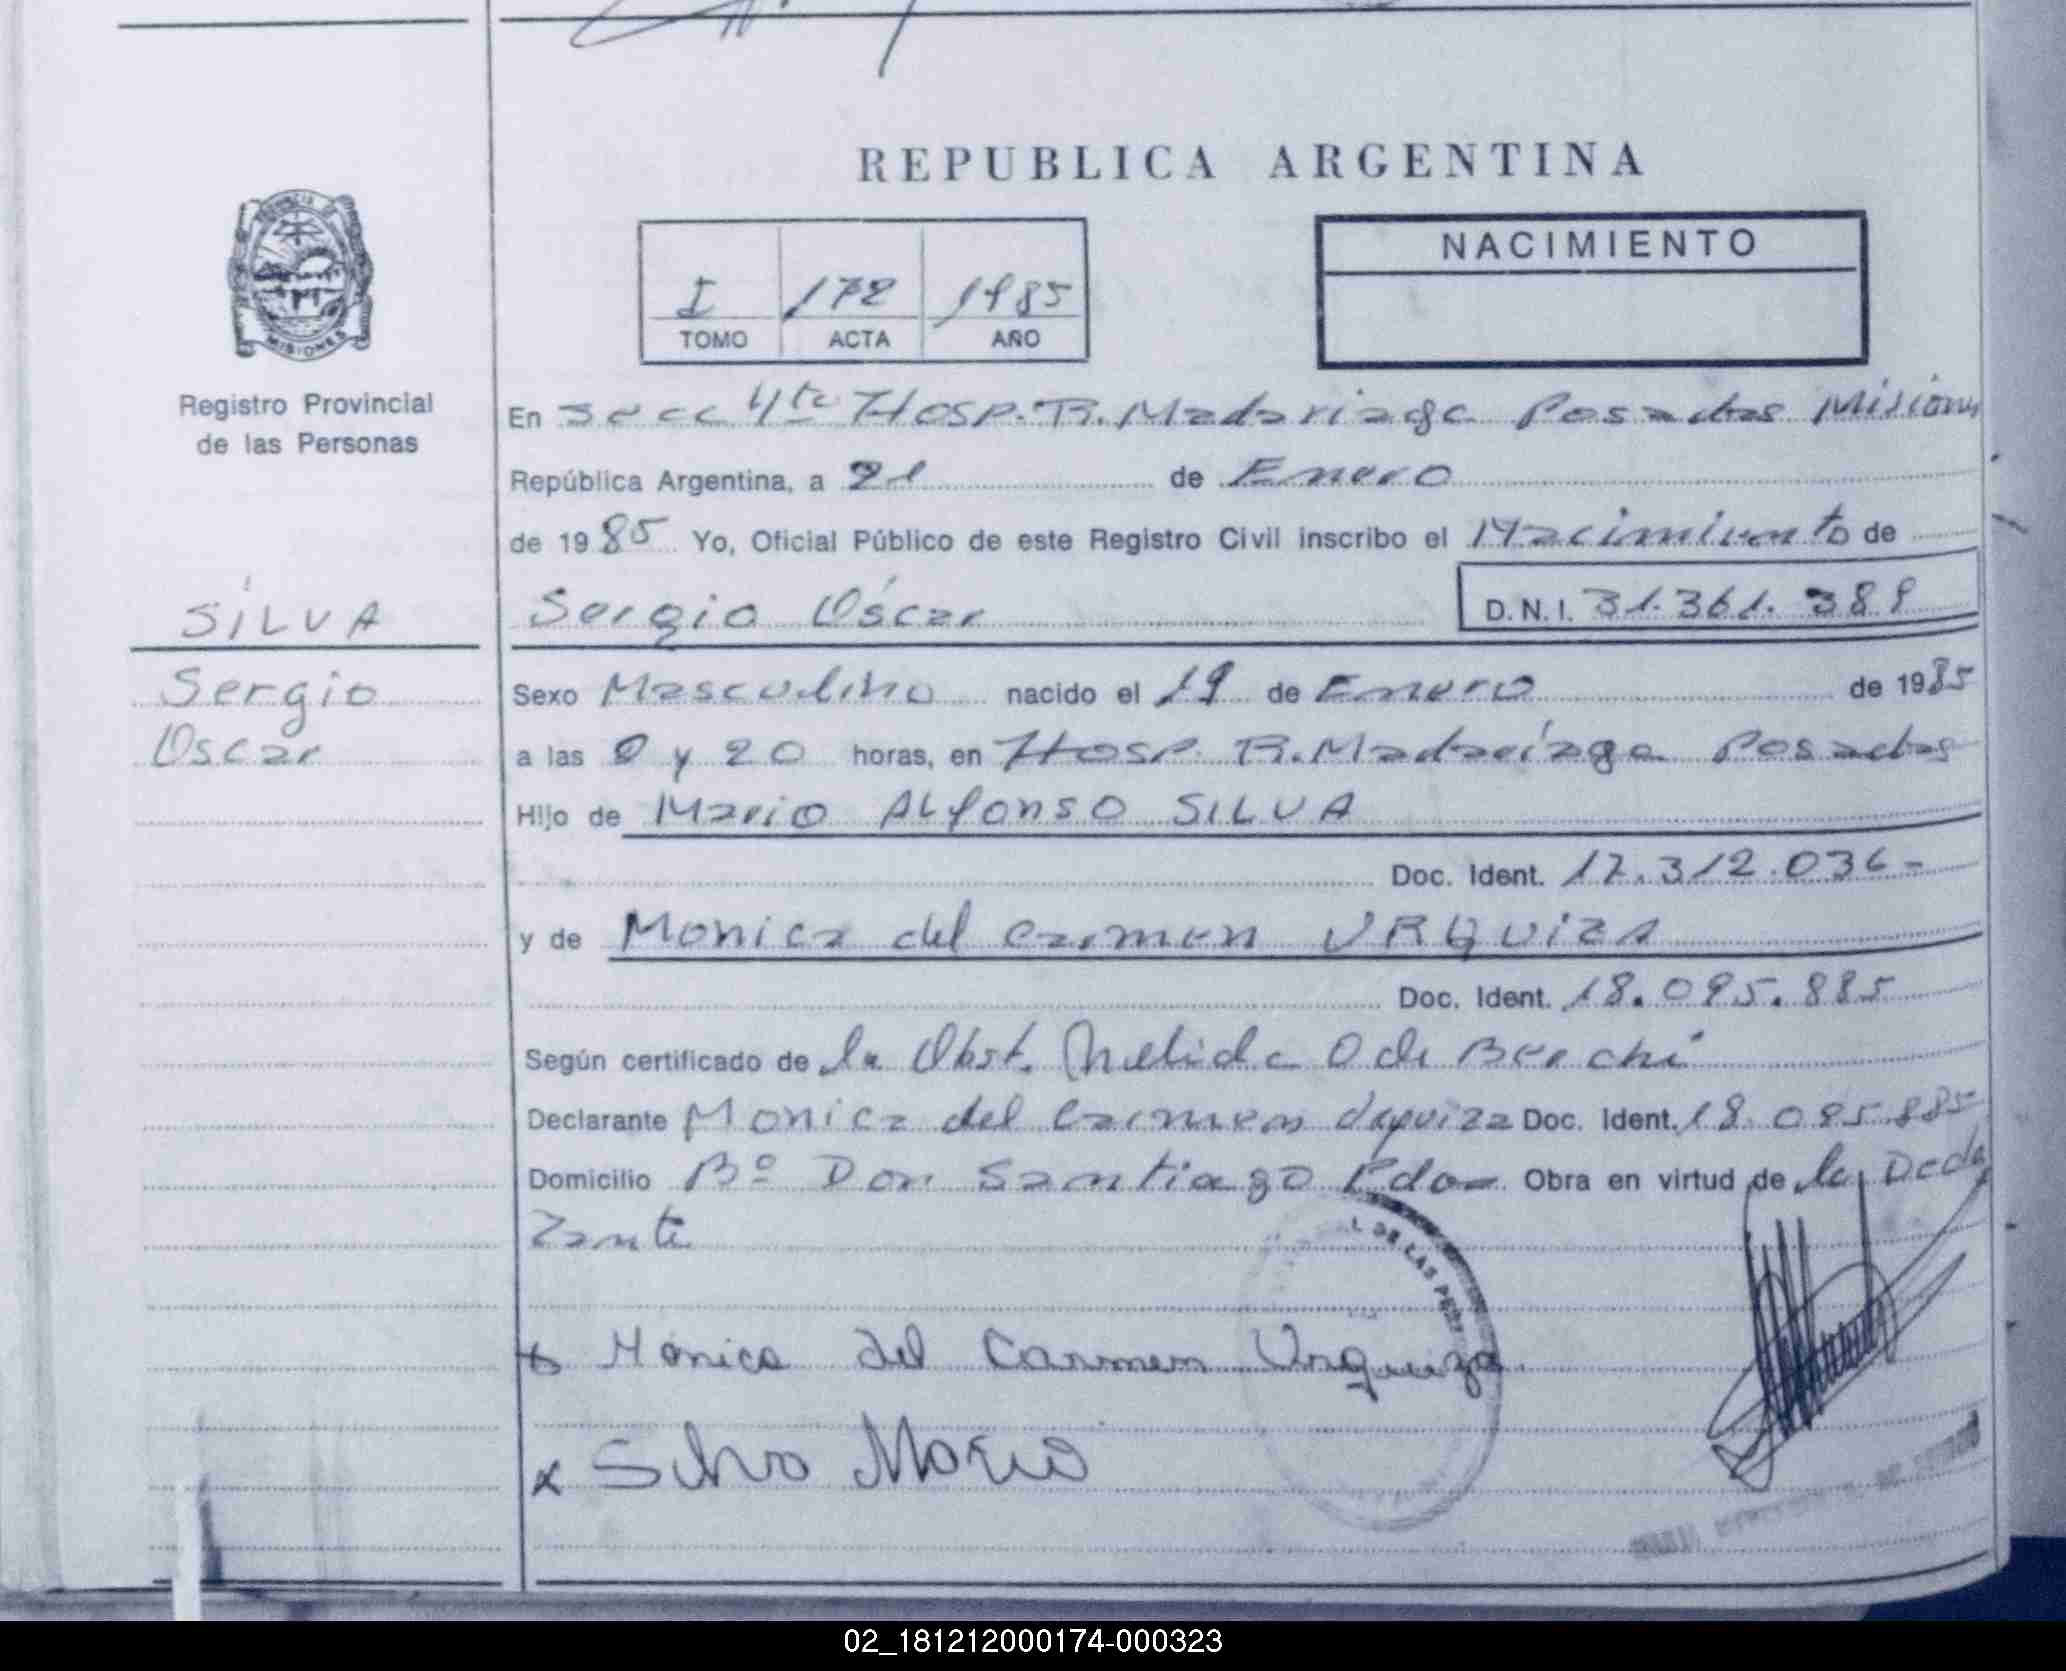 REPUBLICA ARGENTINA
PROVINCIA DE
MISIONES
Registro Provincial
de las Personas
I 172 1985
TOMO ACTA AÑO
NACIMIENTO
En Secc 4ta Hosp. R. Madariaga Posadas Misiones
República Argentina, a 21 de Enero
de 1985 Yo, Oficial Público de este Registro Civil inscribo el Nacimiento de
SILVA
Sergio Oscar
D.N.I. 31.361.389
Sergio
Oscar
Sexo Masculino nacido el 19 de Enero de 1985
a las 0 y 20 horas, en Hosp. R. Madariaga Posadas
Hijo de Mario ALfonso SILVA
Doc. Ident. 17.312.036-
y de Monica del Carmen URQUIZA
Doc. Ident. 18.095.885
Según certificado de la Obst. Nelida O de
Declarante Monica del Carmen Urquiza Doc. Ident. 18.095.885
Domicilio Bº Don Santiago Pdas Obra en virtud de la Decla
rante
L DE LAS PERS
Monica del Carmen Urquiza
x Silva Mario
02_181212000174-000323